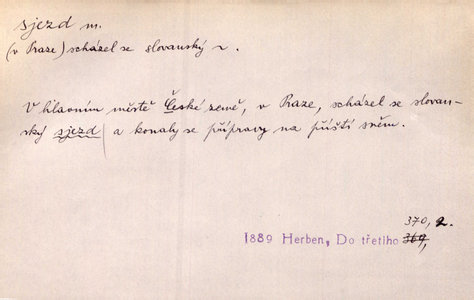 sjezd m.
(v Praze) scházel se slovanský ~.
V hlavním městě České země, v Praze, scházel se slovan-
ský sjezd a konaly se přípravy na příští sněm.
370, 2.
1889 Herben, Do třetího 369,